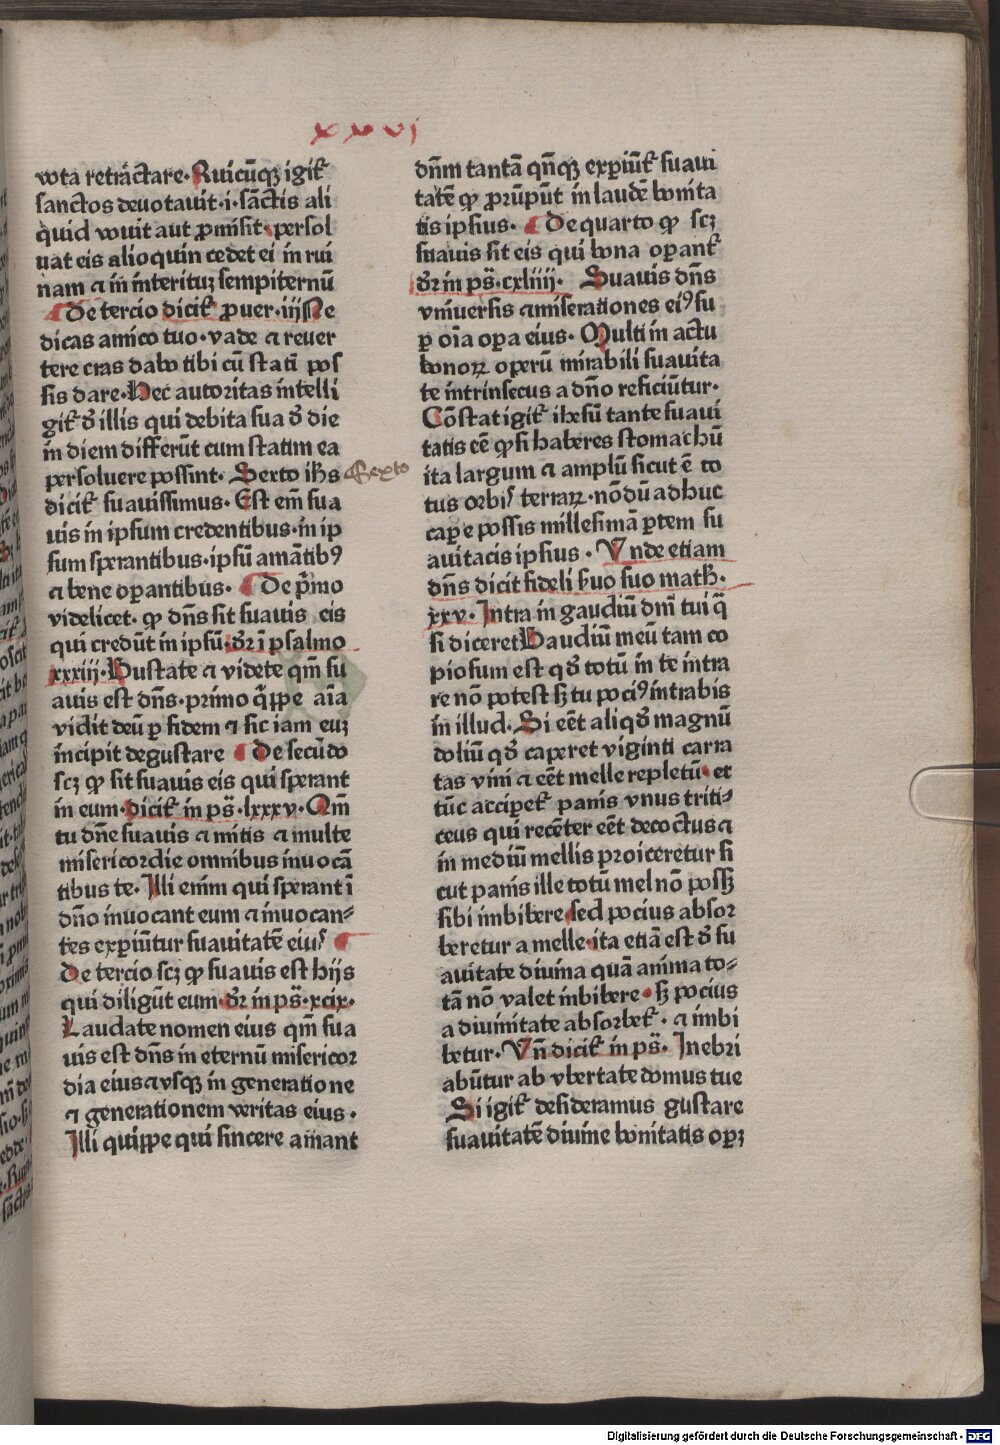 xxvi
vota retractare. Quicūqꝫ igit᷑
sanctos deuotauit·i·sāctis ali
quid vouit aut ꝓmisit· persol
uat eis alioquin cedet ei in rui
nam ⁊ in interituꝫ sempiternū
De tercio dicit᷑ ꝓuer·iij Ne
dicas amico tuo· vade ⁊ reuer
tere cras dabo tibi cū statī pos
sis dare· Hec autoritas intelli
git᷑ ď illis qui debita sua ď die
in diem differūt cum statim ea
persoluere possint· Sexto ih̄s
Sexto
dicit᷑ suauissimus· Est em̄ sua
uis in ipsum credentibus·in ip
sum sperantibus·ipsū amātibꝰ
⁊ bene oꝑantibus· De p̄mo
videlicet· ꝙ dn̄s sit suauis eis
qui credūt in ipsū· ďr ī psalmo
xxxiij· Gustate ⁊ videte qm̄ su
auis est dn̄s· primo q̄ppe aīa
vidit deū ꝑ fidem ⁊ sic iam euꝫ
incipit degustare De secūdo
scꝫ ꝙ sit suauis eis qui sperant
in eum· dicit᷑ in ps̄· lxxxv· Qm̄
tu dn̄e suauis ⁊ mitis ⁊ multe
misericordie omnibus inuocā
tibus te· Illi enim qui sperant ī
dn̄o inuocant eum ⁊ inuocan⸗
tes exꝑiūtur suauitatē eiuſ
De tercio scꝫ ꝙ suauis est hijs
qui diligūt eum· ďr in ps̄· xcix·
Laudate nomen eius qm̄ sua
uis est dn̄s in eternū misericor
dia eius ⁊ vsqꝫ in generatione
⁊ generationem veritas eius·
Illi quippe qui sincere amant
dn̄m tantā qn̄qꝫ exꝑiūt᷑ suaui
tatē ꝙ ꝓrūpūt in laudē bonita
tis ipsius· De quarto ꝙ scꝫ
suauis sit eis qui bona oꝑant᷑
ďr in ps̄· cxliiij· Suauis dn̄s
vniuersis ⁊ miserationes eiꝰ su
ꝑ oīa oꝑa eius· Multi in actu
bonoꝝ operū mirabili suauita
te intrinsecus a dn̄o reficiūtur·
Cōstat igit᷑ ihesū tante suaui
tatis eē ꝙ si haberes stomachū
ita largum ⁊ amplū sicut ē to
tus orbiſ terraꝝ· nōdū adhuc
caꝑe possis millesimā ꝑtem su
auitacis ipsius· Vnde etiam
dn̄s dicit fideli ẜuo suo math̄·
xxv· Intra in gaudiū dn̄i tui q̄
si diceret Gaudiū meū tam co
piosum est qď totū in te intra
re nō potest sꝫ tu pociꝰ intrabis
in illud· Si eēt aliqď magnū
doliū qď caperet viginti carra
tas vini ⁊ eēt melle repletū· et
tūc acciꝑet᷑ panis vnus triti⸗
ceus qui recēter eēt decoctus ⁊
in mediū mellis proiceretur si
cut panis ille totū mel nō possꝫ
sibi imbibere sed pocius absor
beretur a melle·ita etiā est ď su
auitate diuina quā anima to⸗
tā nō valet imbibere· sꝫ pocius
a diuinitate absorbet᷑· ⁊ imbi
betur· Vn̄ dicit᷑ in ps̄· Inebri
abūtur ab vbertate domus tue
Si igit᷑ desideramus gustare
suauitatē diuine bonitatis oꝑꝫ
Digitalisierung gefördert durch die Deutsche Forschungsgemeinschaft - DFG